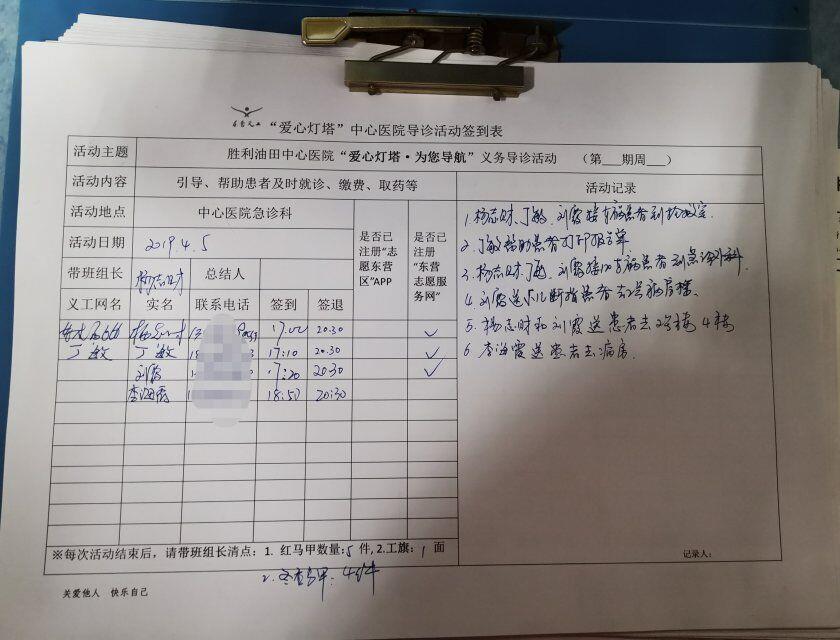 “爱心灯塔”中心医院导诊活动签到表
活动主题 胜利油田中心医院“爱心灯塔·为您导航”义务导诊活动 （第___期周___）
活动内容 引导、帮助患者及时就诊、缴费、取药等 活动记录
活动地点 中心医院急诊科
活动日期 2019.4.5
带班组长 杨志财 总结人
是否已注册“志愿东营区”APP
是否已注册“东营志愿服务网”
义工网名 实名 联系电话 签到 签退
杨志财 17:00 20:30 ✓
丁敏 丁敏 17:10 20:30 ✓
刘霞 17:20 20:30 ✓
李海霞 18:50 20:30
1. 杨志财、丁敏、刘霞 患者到 室.
2. 丁敏帮助患者打印报告单
3. 杨志财、丁敏、刘霞 患者到急诊外科.
4. 刘霞送 断指患者去2号病房楼.
5. 杨志财和刘霞送患者去2号楼4楼
6. 李海霞送患者去病房.
※每次活动结束后，请带班组长清点：1. 红马甲数量:5 件, 2.工旗: 1 面
记录人：
2. 马甲: 4件
关爱他人 快乐自己